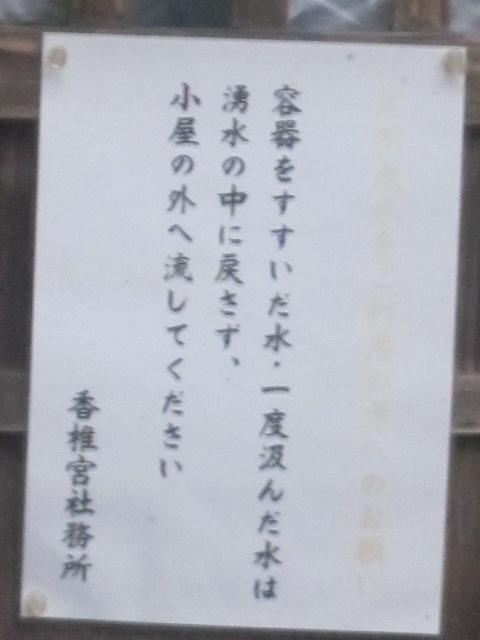 容器をすすいだ水・一度汲んだ水は
湧水の中に戻さず、
小屋の外へ流してください
香椎宮社務所